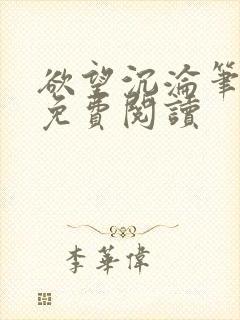 欲望沉淪筆
免費閱讀
李華偉